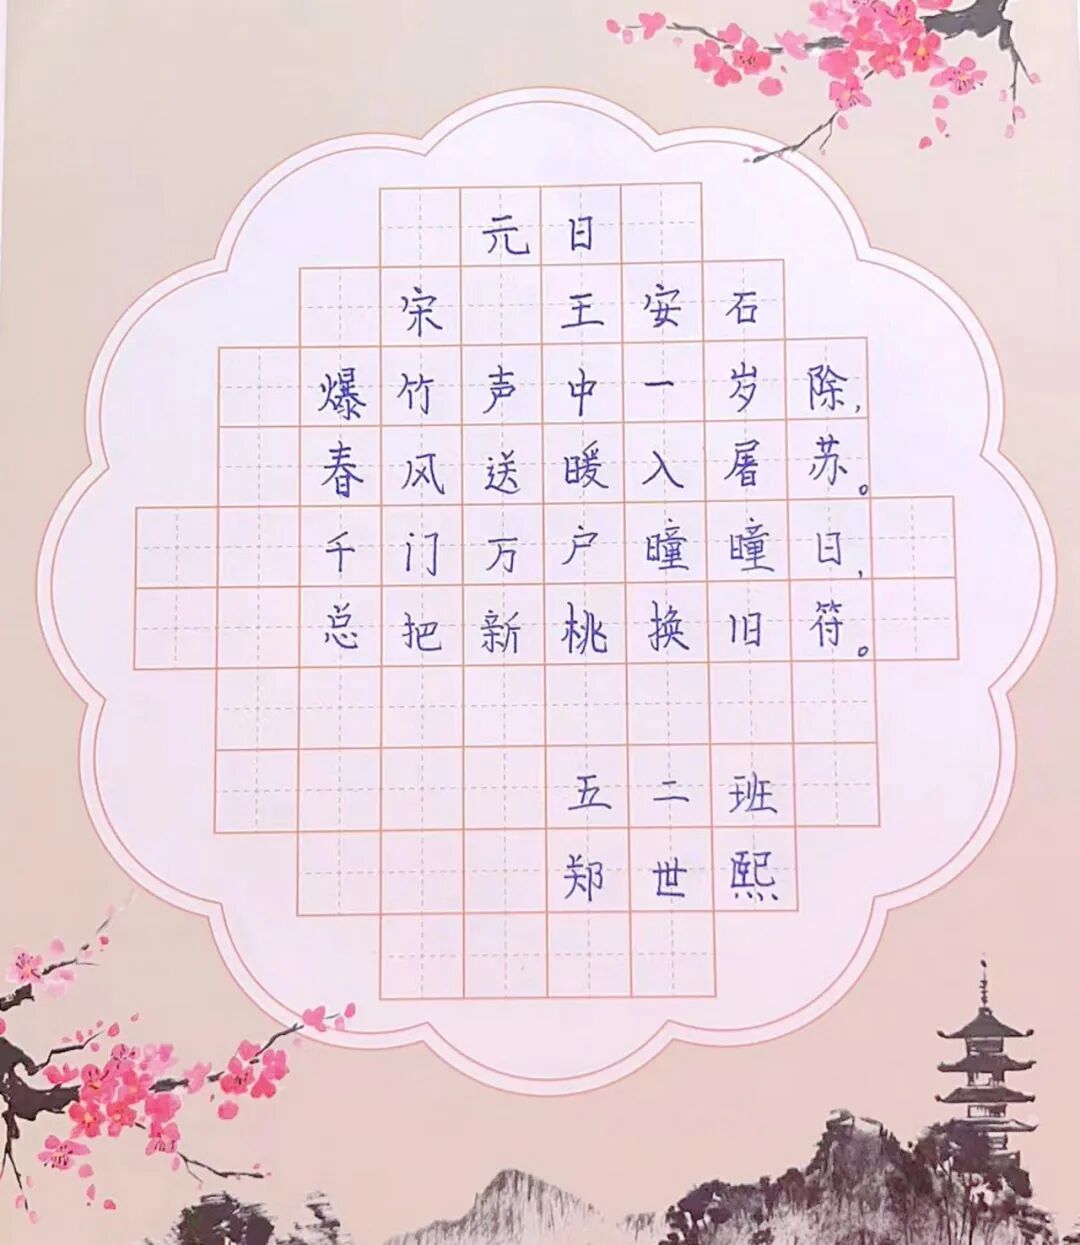 元日
宋 王安石
爆竹声中一岁除,
春风送暖入屠苏。
千门万户瞳瞳日,
总把新桃换旧符。
五二班
郑世熙